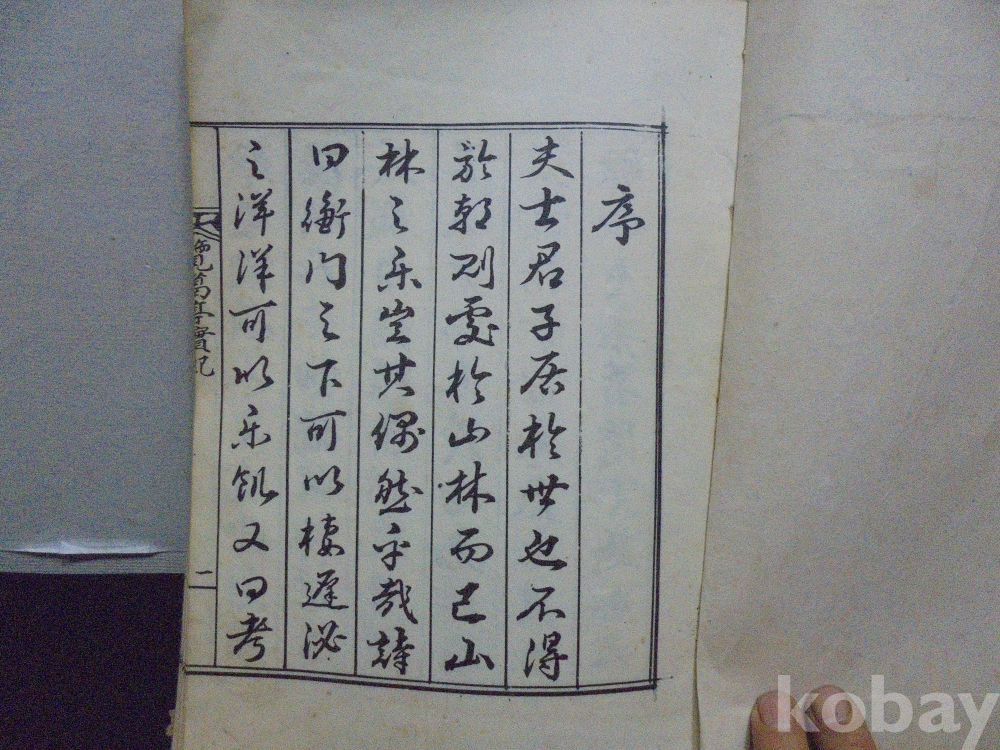 序
夫士君子居於世也不得
於朝則處於山林而已山
林之乐豈其偶然乎哉詩
曰衡門之下可以棲遲泌
之洋洋可以乐飢又曰考
覽 亭實記
一
kobay